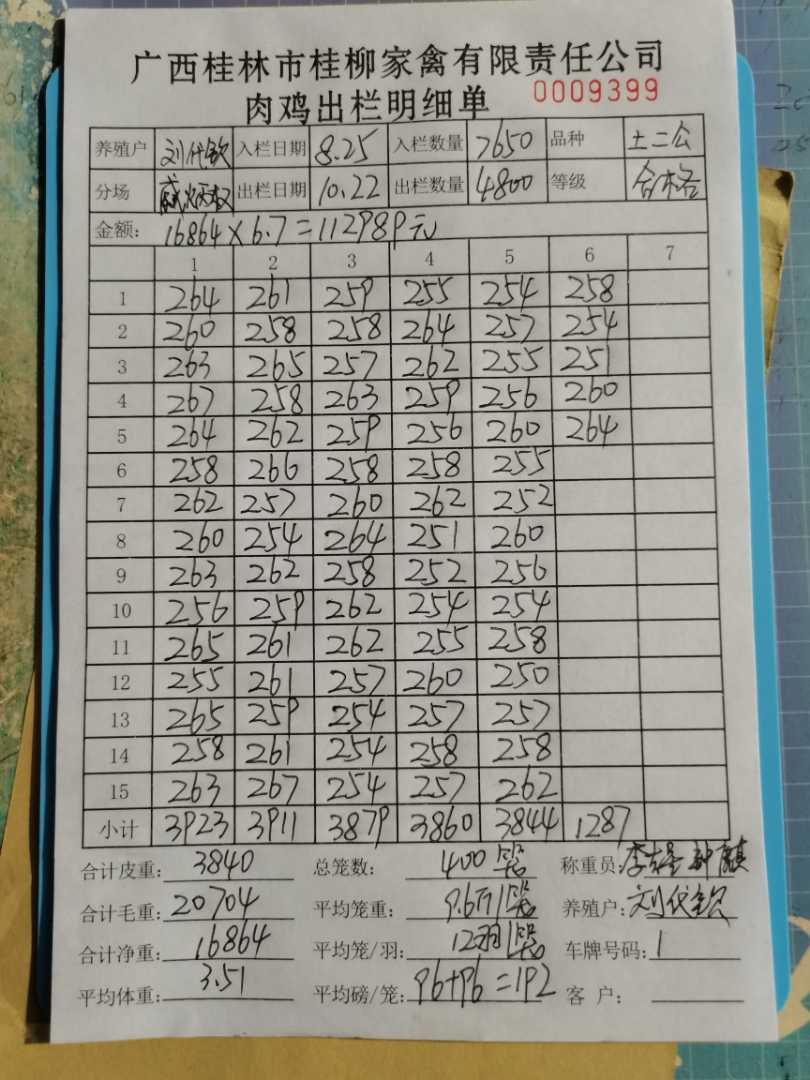 广西桂林市桂柳家禽有限责任公司
肉鸡出栏明细单 0009399
养殖户 刘代钦 入栏日期 8.25 入栏数量 7650 品种 土二公
分场 出栏日期 10.22 出栏数量 4800 等级 合格
金额: 16864×6.7=112989元
1 2 3 4 5 6 7
1 264 261 259 255 254 258
2 260 258 258 264 257 254
3 263 265 257 262 255 251
4 267 258 263 259 256 260
5 264 262 259 256 260 264
6 258 266 258 258 255
7 262 257 260 262 252
8 260 254 264 251 260
9 263 262 258 252 256
10 256 259 262 254 254
11 265 261 262 255 258
12 255 261 257 260 250
13 265 259 254 257 257
14 258 261 254 258 258
15 263 267 254 257 262
小计 3923 3911 3879 3860 3844 1287
合计皮重: 3840 总笼数: 400 称重员:
合计毛重: 20704 平均笼重: 9.6斤/ 养殖户: 刘代钦
合计净重: 16864 平均笼/羽: 12羽/ 车牌号码: 1
平均体重: 3.51 平均磅/笼: 96+96=192 客 户: